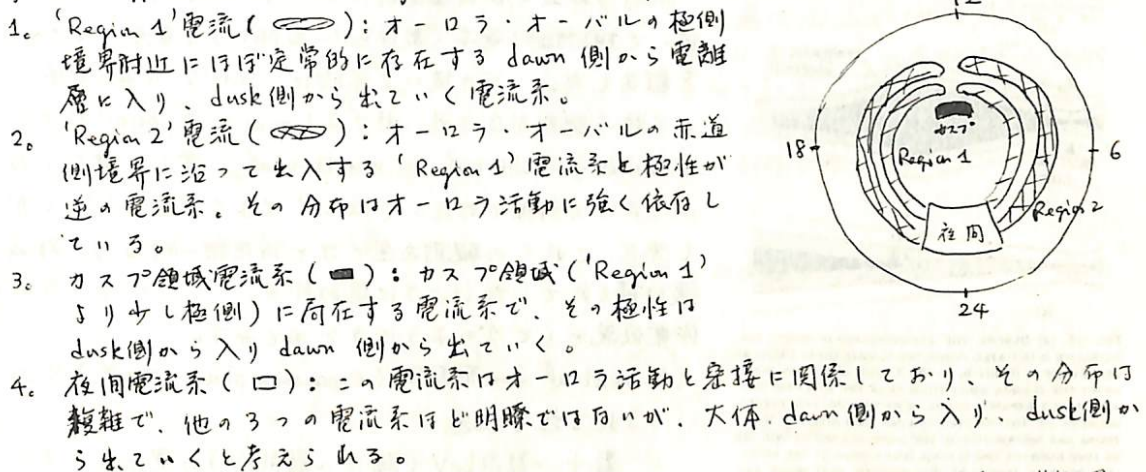 1。 'Region 1'電流( ): オーロラ・オーバルの極側
境界附近にほぼ定常的に存在する dawn 側から電離
層に入り、dusk側から出ていく電流系。
2。 'Region 2'電流( ): オーロラ・オーバルの赤道
側境界に沿って出入する 'Region 1'電流系と極性が
逆の電流系。その分布はオーロラ活動に強く依存し
ている。
3。 カスプ領域電流系( ): カスプ領域('Region 1'
より少し極側)に局在する電流系で、その極性は
dusk側から入り dawn 側から出ていく。
4。 夜間電流系( ): この電流系はオーロラ活動と密接に関係しており、その分布は
複雑で、他の3つの電流系ほど明瞭ではないが、大体、dawn側から入り、dusk側か
ら出ていくと考えられる。
12
カスプ
18
6
Region 1
Region 2
夜間
24